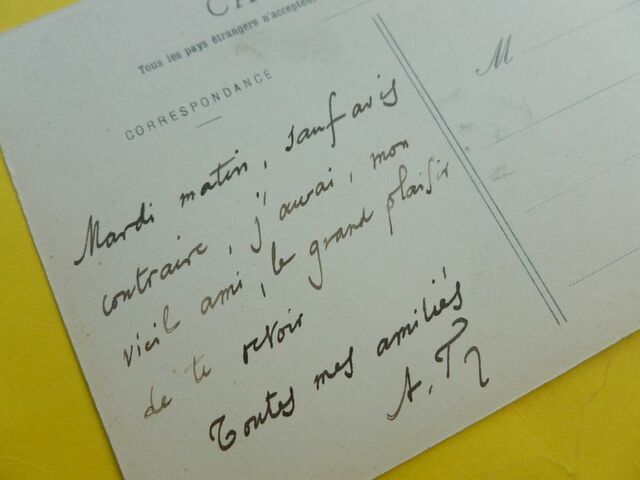 Tous les pays étrangers n'accepten
CORRESPONDANCE
M
Mardi matin, sauf avis
contraire, j'aurai, mon
vieil ami, le grand plaisir
de te revoir
Toutes mes amitiés